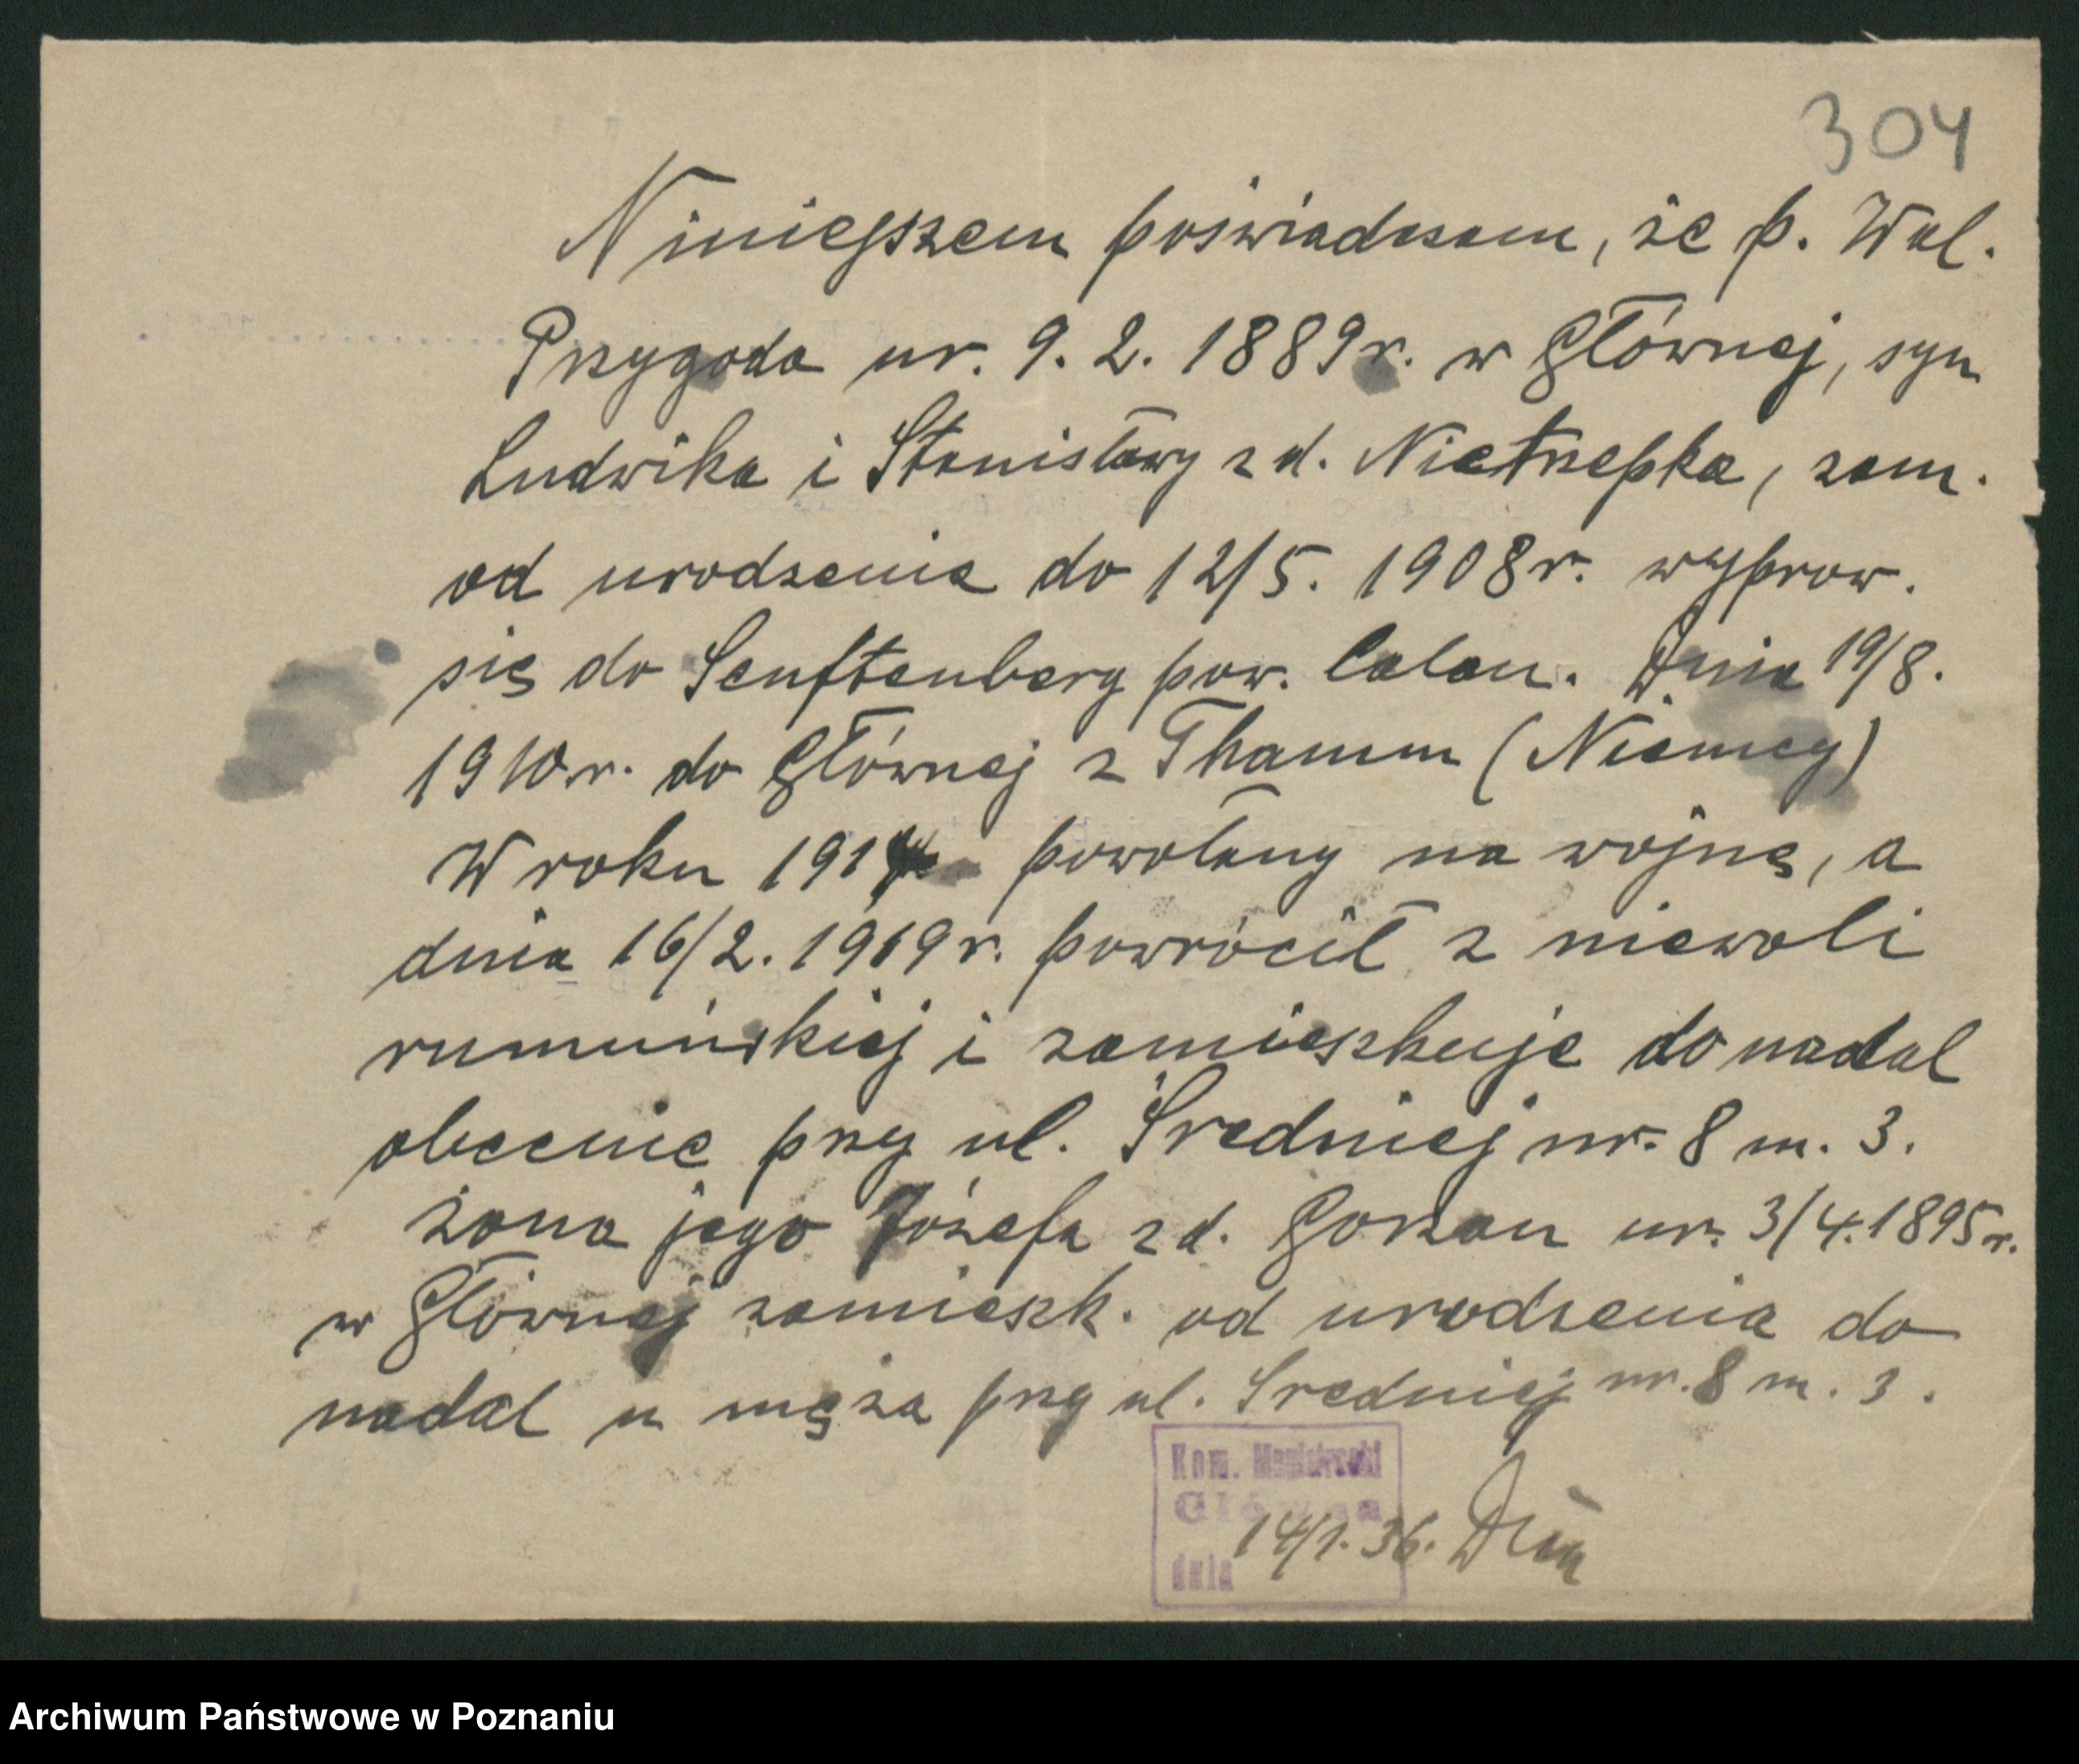 304
Niniejszem poświadczam, że p. Wal.
Przygoda ur. 9. 2. 1889 r. w Głównej, syn
Ludwika i Stanisławy z d. Nietrzepka, zam.
od urodzenia do 12/5. 1908 r. wyprow.
się do Senftenberg pow. Calau. Dnia 19/8.
1910 r. do Głównej z Thamm (Niemcy)
W roku 1914 powołany na wojnę, a
dnia 16/2. 1919 r. powrócił z niewoli
rumuńskiej i zamieszkuje do nadal
obecnie przy ul. Średniej nr. 8 m. 3.
żona jego Józefa z d. Gorzan ur. 3/4. 1895 r.
w Głównej zamieszk. od urodzenia do
nadal u męża przy ul. Sredniej nr. 8 m. 3.
Kom. Magistracki
Główna
dnia 14/1. 36.
Archiwum Państwowe w Poznaniu